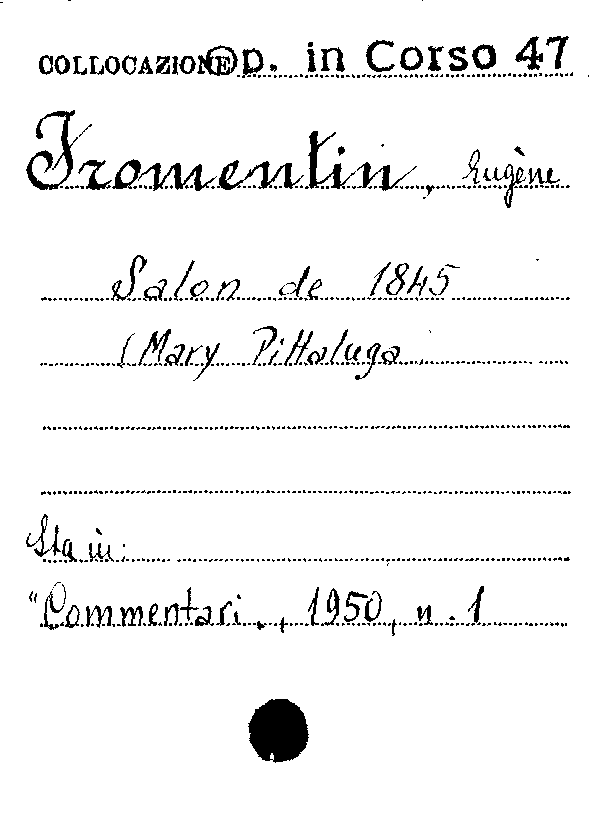 COLLOCAZIONE Op. in Corso 47
Fromentin, Eugène
Salon de 1845
(Mary Pittaluga.
Sta in:
"Commentari., 1950, n. 1